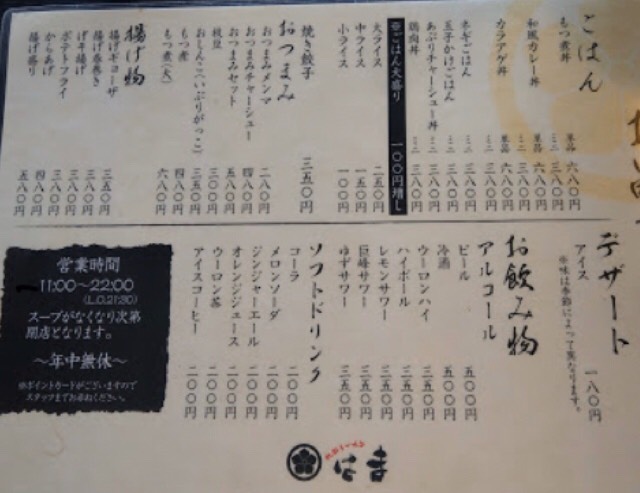 ごはん
もつ煮丼 単品 六八〇円
ミニ 三八〇円
和風カレー丼 単品 六八〇円
ミニ 三八〇円
カラアゲ丼 単品 六八〇円
ミニ 三八〇円
ネギごはん ミニ 三八〇円
玉子かけごはん ミニ 三八〇円
あぶりチャーシュー丼 ミニ 三八〇円
鶏肉丼 ミニ 三八〇円
※ごはん大盛り 一〇〇円増し
大ライス 二五〇円
中ライス 一五〇円
小ライス 一〇〇円
焼き餃子 三五〇円
おつまみ
おつまみメンマ 二八〇円
おつまみチャーシュー 四八〇円
おつまみセット 五八〇円
枝豆 三〇〇円
おしんこ(いぶりがっこ) 三五〇円
もつ煮 四八〇円
もつ煮(大) 六八〇円
揚げ物
揚げギョーザ 三五〇円
揚げ春巻き 三八〇円
げそ揚げ 三八〇円
ポテトフライ 三八〇円
からあげ 四八〇円
揚げ盛り 五八〇円
デザート
アイス 一八〇円
※味は季節によって異なります。
お飲み物
アルコール
ビール 五〇〇円
冷酒 五〇〇円
ウーロンハイ 三五〇円
ハイボール 三五〇円
レモンサワー 三五〇円
巨峰サワー 三五〇円
ゆずサワー 三五〇円
ソフトドリンク
コーラ 二〇〇円
メロンソーダ 二〇〇円
ジンジャーエール 二〇〇円
オレンジジュース 二〇〇円
ウーロン茶 二〇〇円
アイスコーヒー 二〇〇円
営業時間
11:00〜22:00
(L.O.21:30)
スープがなくなり次第
閉店となります。
〜年中無休〜
※ポイントカードがございますので
スタッフまでお尋ねください。
はま